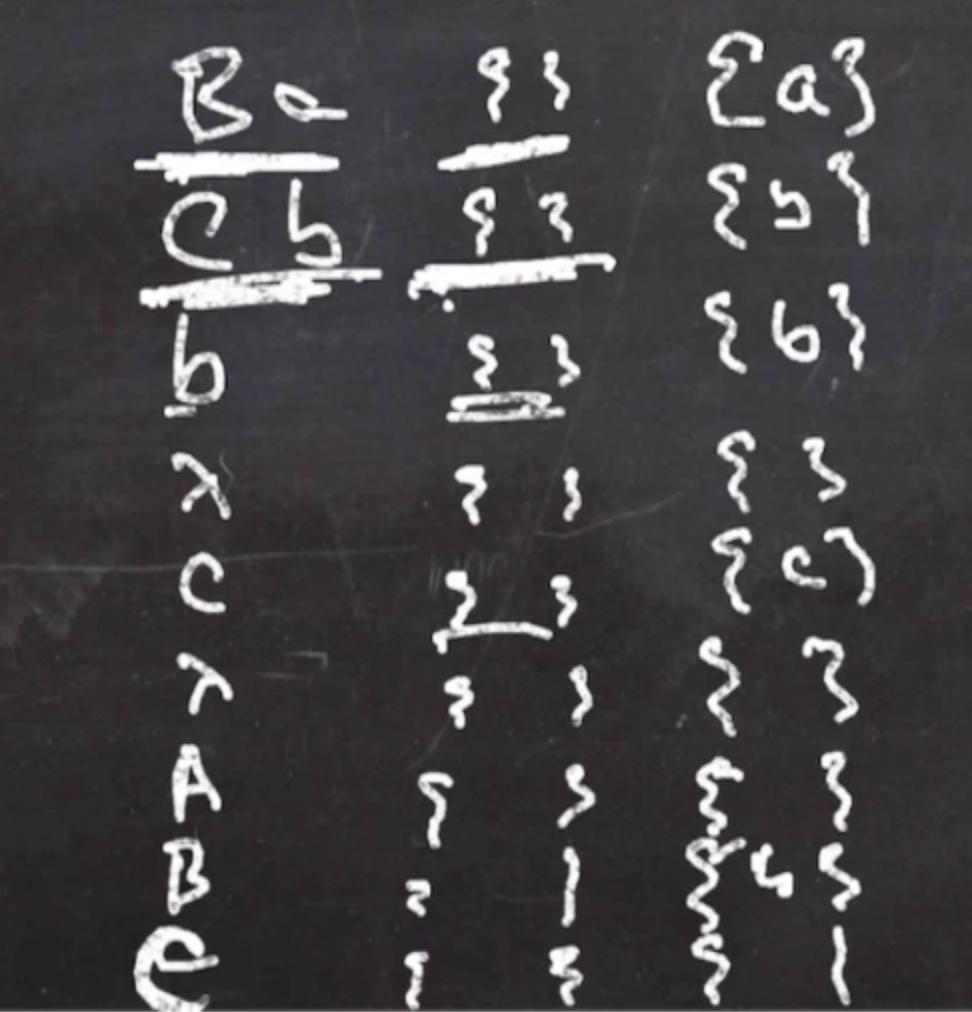 Ba { } {a}
Cb { } {b}
b { } {b}
λ { } { }
c { } {c}
λ { } { }
A { } { }
B { } {b}
C { } { }